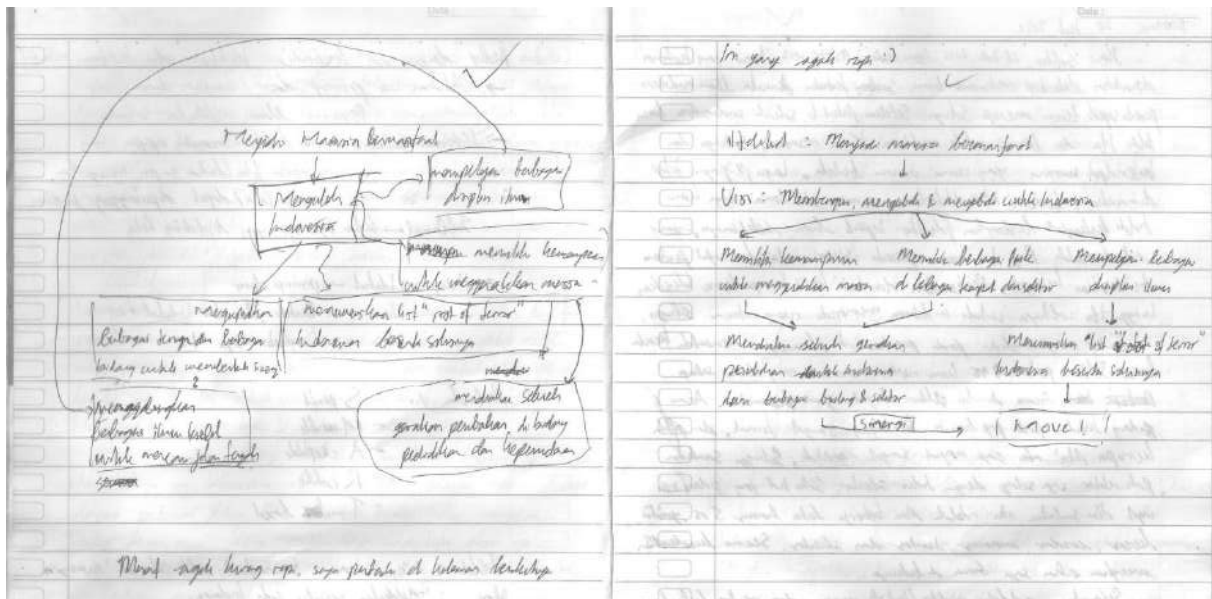 Date :
Menjadi Manusia bermanfaat
Mengubah
Indonesia
mempelajari berbagai
disiplin ilmu
memiliki kemampuan
untuk menggerakkan massa
mengumpulkan
berbagai tenaga dan berbagai
bidang untuk membentuk sinergi
merumuskan list "root of terror"
Indonesia beserta solusinya
menggabungkan
berbagai ilmu
untuk mencari jalan tengah
membuat sebuah
gerakan perubahan, di bidang
pendidikan dan kepemudaan
Maaf agak kurang rapi, saya perbaiki di halaman berikutnya
Date :
Ini yang agak rapi :)
: Menjadi manusia bermanfaat
Visi : Membangun, mengubah & mengabdi untuk Indonesia
Memiliki kemampuan
untuk menggerakkan massa
Memiliki berbagai
di berbagai tempat dan sektor
Mempelajari berbagai
disiplin ilmu
Membuat sebuah gerakan
perubahan untuk Indonesia
dari berbagai bidang & sektor
Merumuskan "list of root of terror"
Indonesia beserta solusinya
Sinergi
Move!